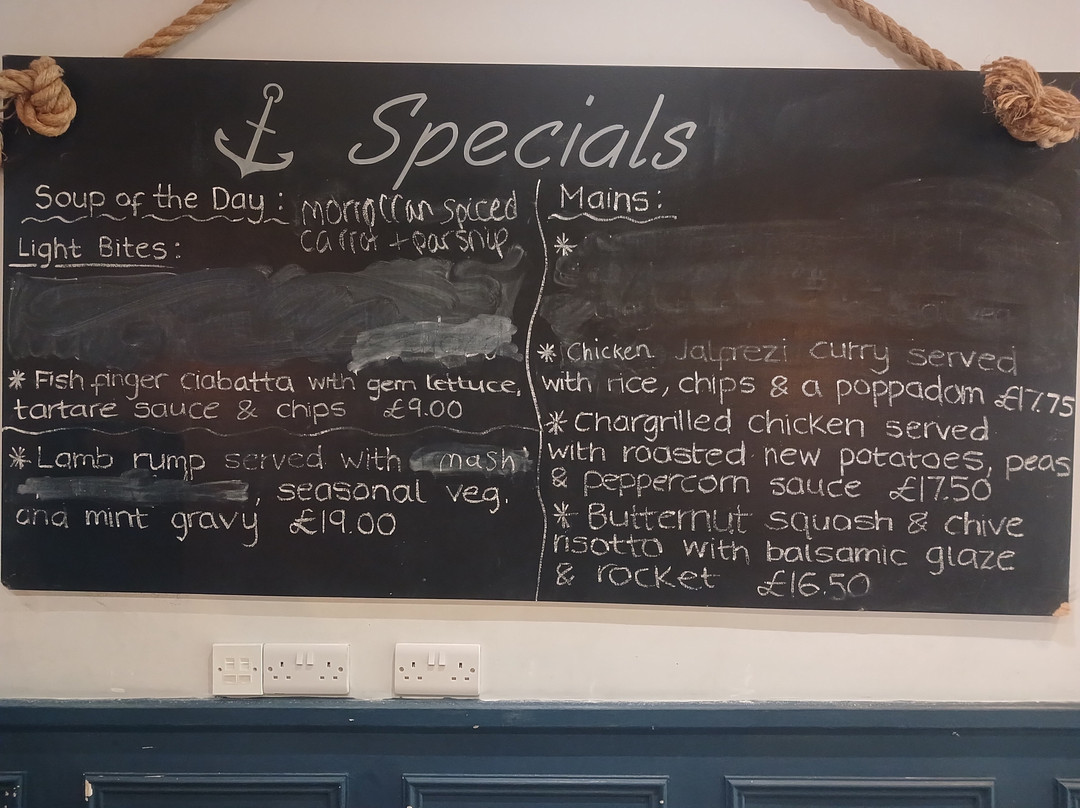 Specials
Soup of the Day: morroccan spiced
carrot + parsnip
Light Bites:
* Fish finger ciabatta with gem lettuce,
tartare sauce & chips £9.00
* Lamb rump served with mash
, seasonal veg.
and mint gravy £19.00
Mains:
*
* Chicken Jalfrezi curry served
with rice, chips & a poppadom £17.75
* Chargrilled chicken served
with roasted new potatoes, peas
& peppercorn sauce £17.50
* Butternut squash & chive
risotto with balsamic glaze
& rocket £16.50